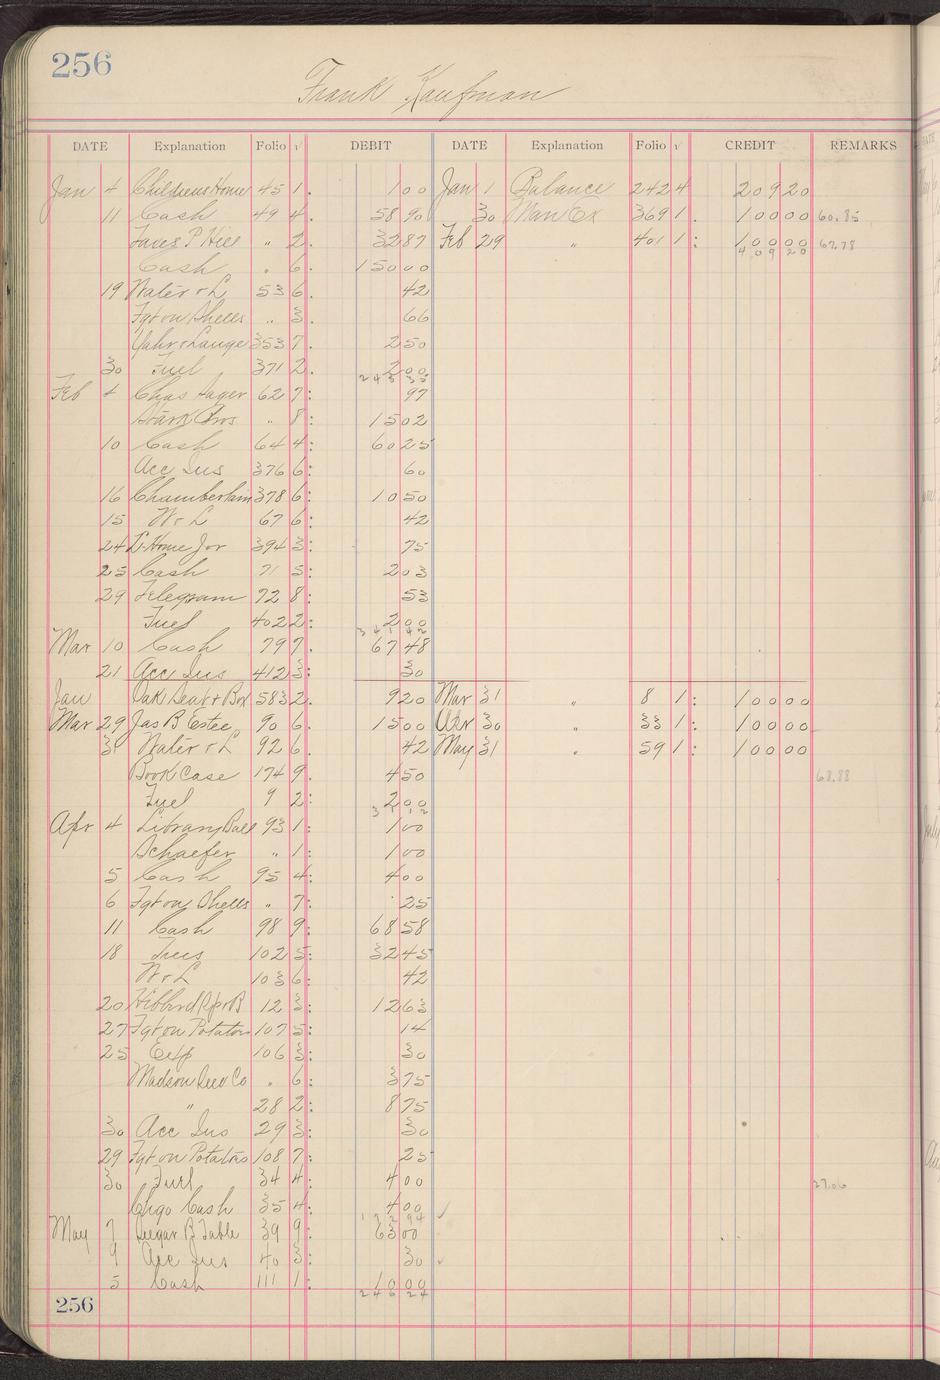 256
Frank Kaufman
DATE Explanation Folio √ DEBIT DATE Explanation Folio √ CREDIT REMARKS
Jan 4 Childrens Home 45 1. 1 00 Jan 1 Balance 242 4 209 20
11 Cash 49 4. 58 90 30 Man Ex 369 1. 100 00 60.85
Taxes P Hill " 2. 32 87 Feb 29 " 401 1: 100 00 67.78
409 20
Cash " 6. 150 00
19 Water & L 53 6. 42
Fgt on Shells " 3. 66
Yahr & Lange 353 7. 2 50
30 Fuel 371 2. 2 00
243 35
Feb 4 Chas Hager 62 7: 97
Stark Bros " 8: 15 02
10 Cash 64 4: 60 25
Acc Ins 376 6: 60
16 Chamberlam 378 6: 10 50
15 W & L 67 6: 42
24 L. Home Jor 394 3: 75
25 Cash 71 5: 2 03
29 Telegram 72 8: 53
Fuel 402 2: 2 00
341 42
Mar 10 Cash 79 7. 67 48
21 Acc Ins 412 3: 30
Jan Oak Seat & Box 583 2. 9 20 Mar 31 " 8 1: 100 00
Mar 29 Jas B Estee 90 6. 15 00 Apr 30 " 33 1: 100 00
31 Water & L 92 6. 42 May 31 " 59 1: 100 00
Book Case 174 9. 4 50 68.88
Fuel 9 2: 2 00
311 12
Apr 4 Library Ball 93 1: 1 00
Schaefer " 1: 1 00
5 Cash 95 4: 4 00
6 Fgt on Shells " 7: 25
11 Cash 98 9: 68 58
18 Trees 102 5: 32 45
W & L 103 6: 42
20 Hibbard 12 3: 12 63
27 Fgt on Potatoes 107 5: 14
25 Exp 106 3: 30
Madson Co " 6: 3 75
" 28 2: 8 75
30 Acc Ins 29 3: 30
29 Fgt on Potatoes 108 7: 25
30 Fuel 34 4: 4 00 27.06
Chgo Cash 35 4: 4 00 √
172 94
May 7 R Table 39 9: 63 00
9 Acc Ins 40 3: 30 √
5 Cash 111 1: 10 00
246 24
256